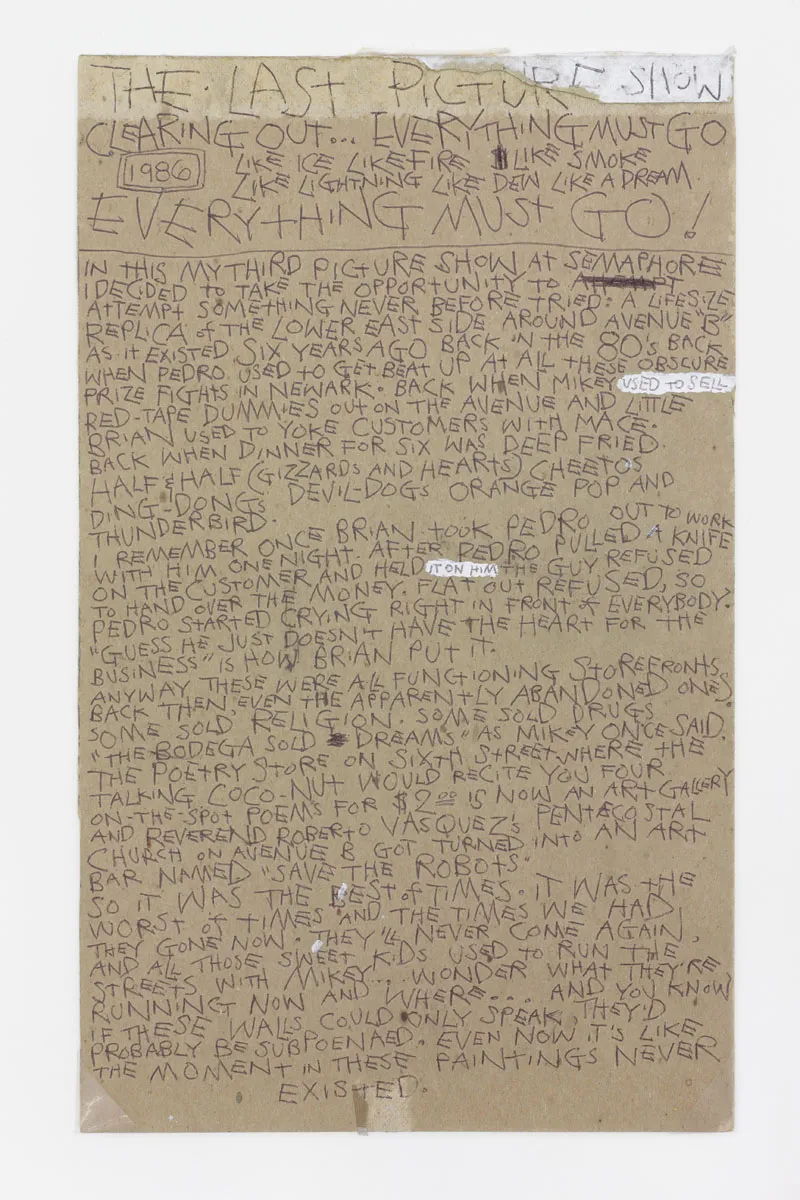 THE LAST PICTURE SHOW
CLEARING OUT... EVERYTHING MUST GO
1986
LIKE ICE LIKE FIRE LIKE SMOKE
LIKE LIGHTNING LIKE DEW LIKE A DREAM.
EVERYTHING MUST GO!
IN THIS MY THIRD PICTURE SHOW AT SEMAPHORE
I DECIDED TO TAKE THE OPPORTUNITY TO
ATTEMPT SOMETHING NEVER BEFORE TRIED: A LIFESIZE
REPLICA of THE LOWER EAST SIDE AROUND AVENUE "B"
AS IT EXISTED SIX YEARS AGO BACK IN THE 80's BACK
WHEN PEDRO USED TO GET BEAT UP AT ALL THESE OBSCURE
PRIZE FIGHTS IN NEWARK. BACK WHEN MIKEY USED TO SELL
RED-TAPE DUMMIES OUT ON THE AVENUE AND LITTLE
BRIAN USED TO YOKE CUSTOMERS WITH MACE.
BACK WHEN DINNER FOR SIX WAS DEEP FRIED
HALF & HALF (GIZZARDS AND HEARTS) CHEETOS
DING-DONGS DEVIL-DOGS ORANGE POP AND
THUNDERBIRD.
I REMEMBER ONCE BRIAN TOOK PEDRO OUT TO WORK
WITH HIM ONE NIGHT. AFTER PEDRO PULLED A KNIFE
ON THE CUSTOMER AND HELD IT ON HIM THE GUY REFUSED
TO HAND OVER THE MONEY. FLAT OUT REFUSED, SO
PEDRO STARTED CRYING RIGHT IN FRONT of EVERYBODY.
"GUESS HE JUST DOESN'T HAVE THE HEART FOR THE
BUSINESS" IS HOW BRIAN PUT IT.
ANYWAY THESE WERE ALL FUNCTIONING STOREFRONTS
BACK THEN, EVEN THE APPARENTLY ABANDONED ONES.
SOME SOLD RELIGION. SOME SOLD DRUGS
"THE BODEGA SOLD DREAMS" AS MIKEY ONCE SAID.
THE POETRY STORE ON SIXTH STREET WHERE THE
TALKING COCO-NUT WOULD RECITE YOU FOUR
ON-THE-SPOT POEMS FOR $2.00 IS NOW AN ART GALLERY
AND REVEREND ROBERTO VASQUEZ's PENTECOSTAL
CHURCH ON AVENUE B GOT TURNED INTO AN ART
BAR NAMED "SAVE THE ROBOTS"
SO IT WAS THE BEST of TIMES. IT WAS THE
WORST of TIMES AND THE TIMES WE HAD
THEY GONE NOW. THEY'LL NEVER COME AGAIN,
AND ALL THOSE SWEET KIDS USED TO RUN THE
STREETS WITH MIKEY... WONDER WHAT THEY'RE
RUNNING NOW AND WHERE... AND YOU KNOW
IF THESE WALLS COULD ONLY SPEAK, THEY'D
PROBABLY BE SUBPOENAED. EVEN NOW IT'S LIKE
THE MOMENT IN THESE PAINTINGS NEVER
EXISTED.